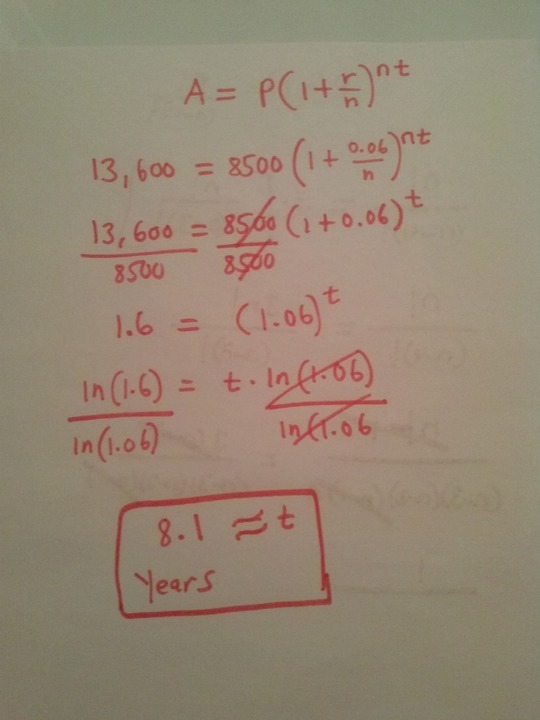 A = P(1+r/n)^nt
13,600 = 8500(1+0.06/n)^nt
13,600/8500 = 8500/8500(1+0.06)^t
1.6 = (1.06)^t
ln(1.6)/ln(1.06) = t·ln(1.06)/ln(1.06
8.1 ≈ t
Years